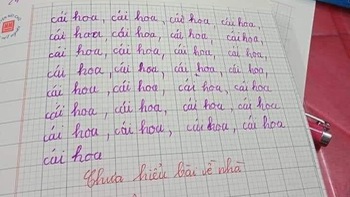 cái hoa, cái hoa, cái hoa, cái hoa,
cái hoa, cái hoa, cái hoa, cái hoa,
cái hoa, cái hoa, cái hoa, cái hoa,
cái hoa, cái hoa, cái hoa, cái hoa,
cái hoa, cái hoa, cái hoa, cái hoa
cái hoa, cái hoa, cái hoa, cái hoa
cái hoa, cái hoa, cái hoa, cái hoa
cái hoa
Chưa hiểu bài về nhà